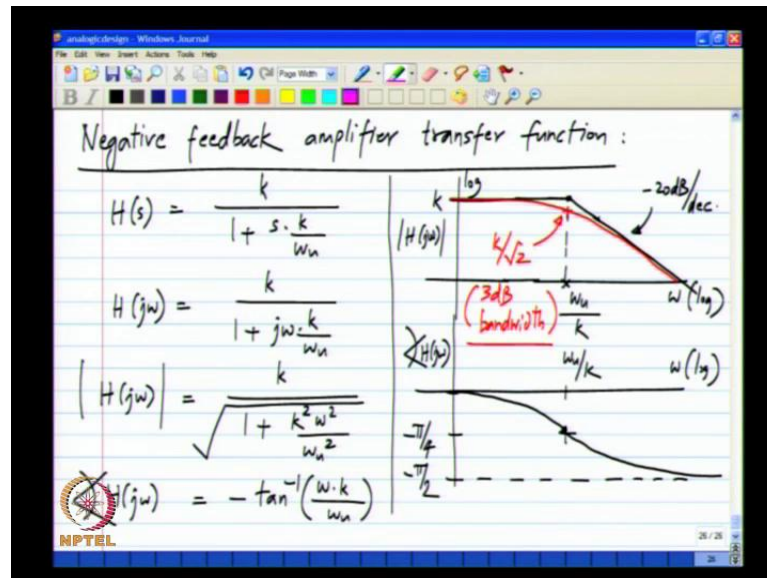 analogicdesign - Windows Journal
File Edit View Insert Actions Tools Help
Page Width
B I
Negative feedback amplifier transfer function :
H(s) = k / (1 + s · k/ωu)
H(jω) = k / (1 + jω · k/ωu)
|H(jω)| = k / √(1 + k²ω²/ωu²)
∠H(jω) = -tan⁻¹(ω·k/ωu)
log
k
|H(jω)|
-20dB/dec.
k/√2
(3dB bandwidth)
ωu/k
ω (log)
∠H(jω)
ωu/k
ω (log)
-π/4
-π/2
NPTEL
26 / 26
26